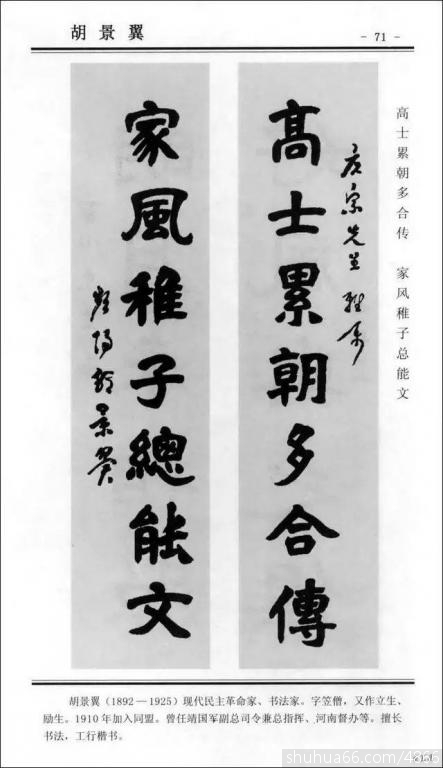 胡景翼
- 71 -
高士累朝多合传 家风稚子总能文
宗先生雅属
髙士累朝多合傳
家風稚子總能文
頻陽胡景翼
胡景翼（1892—1925）现代民主革命家、书法家。字笠僧，又作立生、
励生。1910年加入同盟。曾任靖国军副总司令兼总指挥、河南督办等。擅长
书法，工行楷书。
shuhua66.com